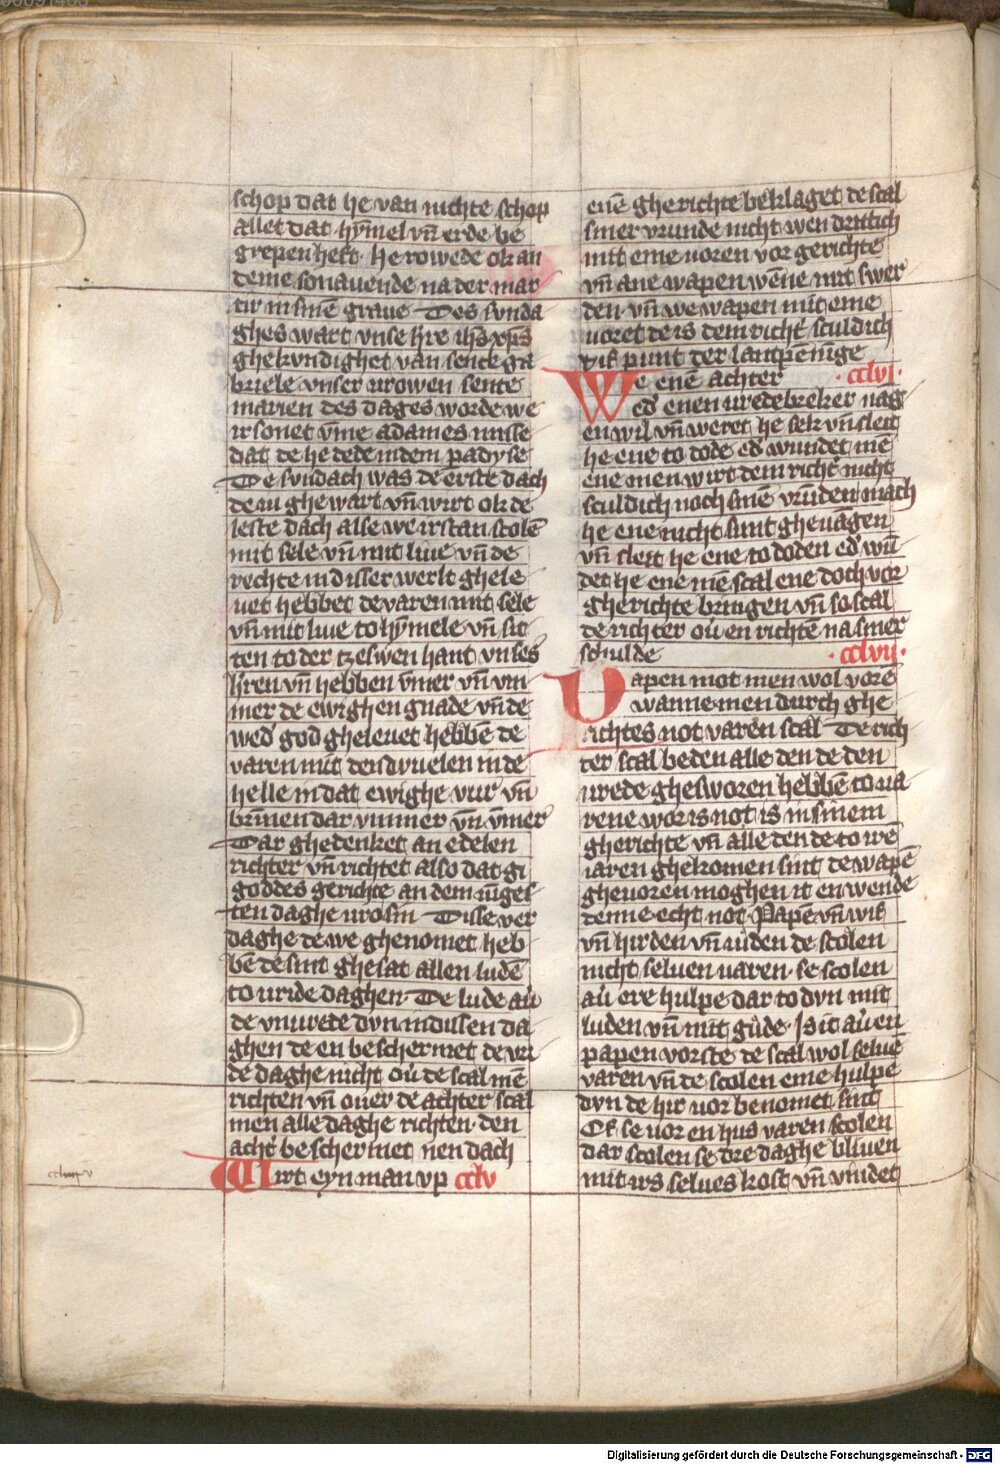 schop dat he van nichte schop
allet dat hȳmel vn̄ erde be
grepen heft he rowede ok an
deme sonauende na der mar
tir in sinē graue Des sunda
ghes wart vnse h̄re ih̄s xp̄s
ghekundighet van sente ga
briele vnser urowen sente
marien des dages worde we
irsonet vm̄e adames misse
dat de he dede in dem padyse
De sundach was de erste dach
de iu ghewart vn̄ wirt ok de
leste dach alse we irstan scolē
mit sele vn̄ mit liue vn̄ de
rechte in disser werlt ghele
uet hebbet de varen mit sele
vn̄ mit liue to hȳmele vn̄ sit
ten to der tzeswen hant vnses
h̄ren vn̄ hebben ȳmer vn̄ ym
mer de ewighen gnade vn̄ de
wed' god gheleuet hebbē de
varen mit den dyuelen in de
helle in dat ewighe vur vn̄
brinen dar ymmer vn̄ ȳmer
Dar ghedenket an edelen
richter vn̄ richtet also dat gi
goddes gerichte an dem iūges
ten daghe uro sin Disse ver
daghe de we ghenomet heb
bē de sint ghesat allen ludē
to uride daghen De lude au'
de vnurede dyn in dussen da
ghen de en beschermet de vri
de daghe nicht ou' de scal mē
richten vn̄ ouer de achter scal
men alle daghe richten den
acht' beschermet nen dach
Wirt eyn man vp cclv
ccliiij v
enē gherichte beklaget de scal
siner vrunde nicht wen drittich
mit eme uoren vor gerichte
vn̄ ane wapen wēne mit swer
den vn̄ we wapen mit eme
uoret de is dem richt' sculdich
vif punt der lantpēnige
We enē achter ·cclvi·
ed' enen uredebreker uag
en wil vn̄ weret he sek vn̄ sleit
he ene to dode ed' wundet mē
ene men wirt dem richt' nicht
sculdich noch sinē vrūden mach
he ene nicht sunt gheuāgen
vn̄ sleit he ene to doden ed' wū
det he ene mē scal ene doch vor
gherichte bringen vn̄ so scal
de richter ou' en richtē na siner
schulde ·cclvii·
Uapen mot men wol vorē
wanne men durch ghe
richtes not varen scal De rich
ter scal beden alle den de den
urede ghesworen hebbē to ua
rene wor is not is in sinem
gherichte vn̄ alle den de to irē
iaren ghekomen sint de wapē
gheuoren moghen it en wende
denne echt not Papē vn̄ wif
vn̄ hirden vn̄ iuden de scolen
nicht seluen uaren se scolen
au' ere hulpe dar to dyn mit
luden vn̄ mit gude Is it au' en
papen vorste de scal wol selue
varen vn̄ de scolen eme hulpe
dyn de hir vor benomet sint
Of se uor en hus varen scolen
dar scolen se dre daghe bliuen
mit irs selues kost vn̄ vindet
Digitalisierung gefördert durch die Deutsche Forschungsgemeinschaft - DFG